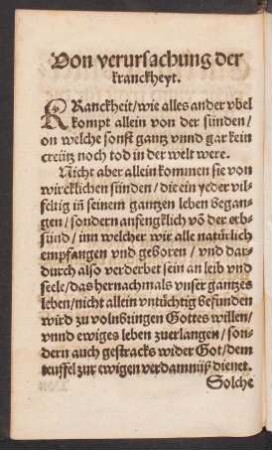 Von verursachung der
kranckheyt.
KRanckheit/wie alles ander vbel
kompt allein von der sünden/
on welche sonst gantz vnnd gar kein
creütz noch tod in der welt were.
Nicht aber allein kommen sie von
wircklichen sünden/die ein yeder vil-
feltig iñ seinem gantzen leben began-
gen/sondern anfengklich võ der erb-
sünd/inn welcher wir alle natürlich
empfangen vnd geboren/vnd dar-
durch also verderbet sein an leib vnd
seele/das hernachmals vnser gantzes
leben/nicht allein vntüchtig befunden
wird zu volnbringen Gottes willen/
vnnd ewiges leben zuerlangen/son-
dern auch gestracks wider Got/dem
teuffel zur ewigen verdamnüß dienet.
Solche